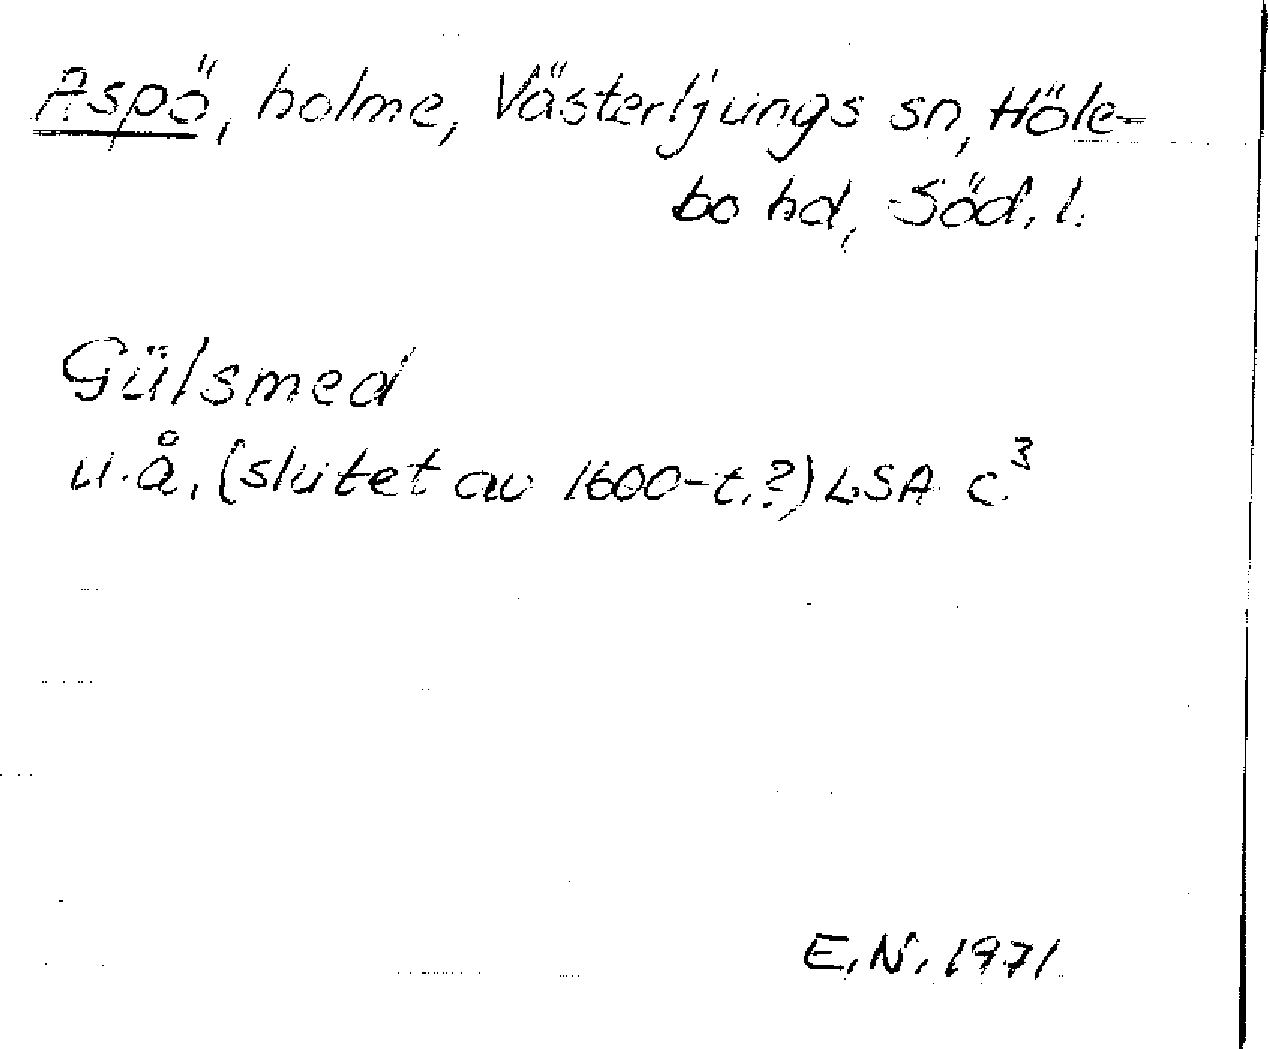 Aspö, holme, Västerljungs sn, Höle-
bo hd, Söd. l.
Gülsmed
u.å. (slutet av 1600-t.?) LSA c.³
E.N. 1971